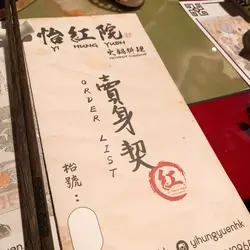 怡紅院
YI HUNG YUEN
火鍋料理
HOTPOT CUISINE
賣身契
ORDER LIST
紅
枱號：
yihungyuenhk